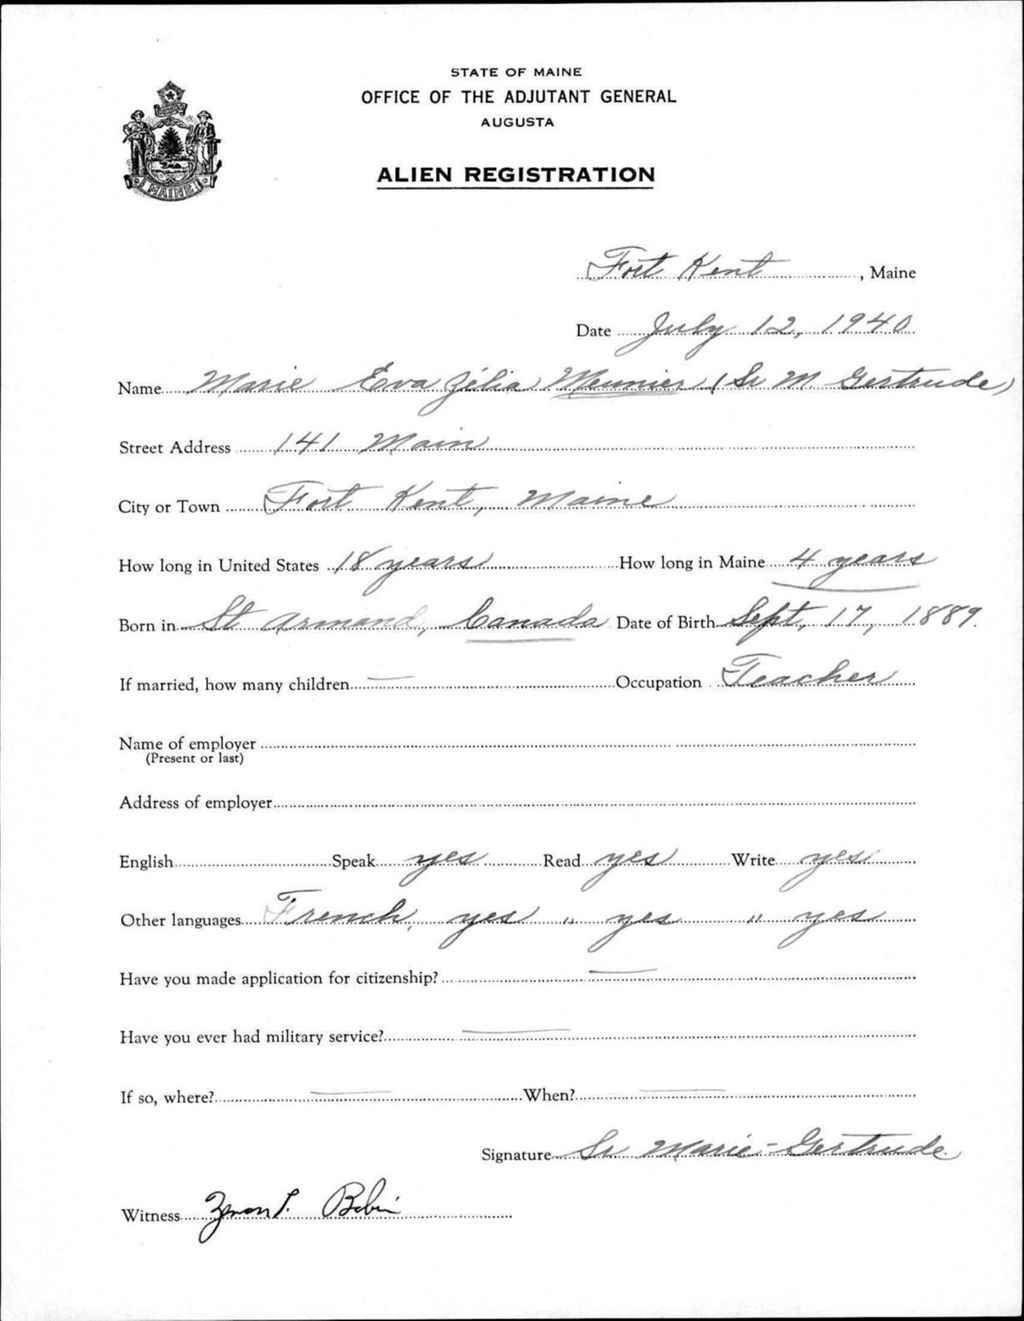 STATE OF MAINE
OFFICE OF THE ADJUTANT GENERAL
AUGUSTA
ALIEN REGISTRATION
MAINE
Fort Kent, Maine
Date July 12, 1940
Name Marie Eva Zélia Meunier (Sr M Gertrude)
Street Address 141 Main
City or Town Fort Kent, Maine
How long in United States 18 years How long in Maine 4 years
Born in St Armand, Canada Date of Birth Sept, 17, 1889.
If married, how many children — Occupation Teacher
Name of employer
(Present or last)
Address of employer
English Speak yes Read yes Write yes
Other languages French, yes " yes " yes
Have you made application for citizenship? —
Have you ever had military service? —
If so, where? — When? —
Signature Sr Marie-Gertrude.
Witness